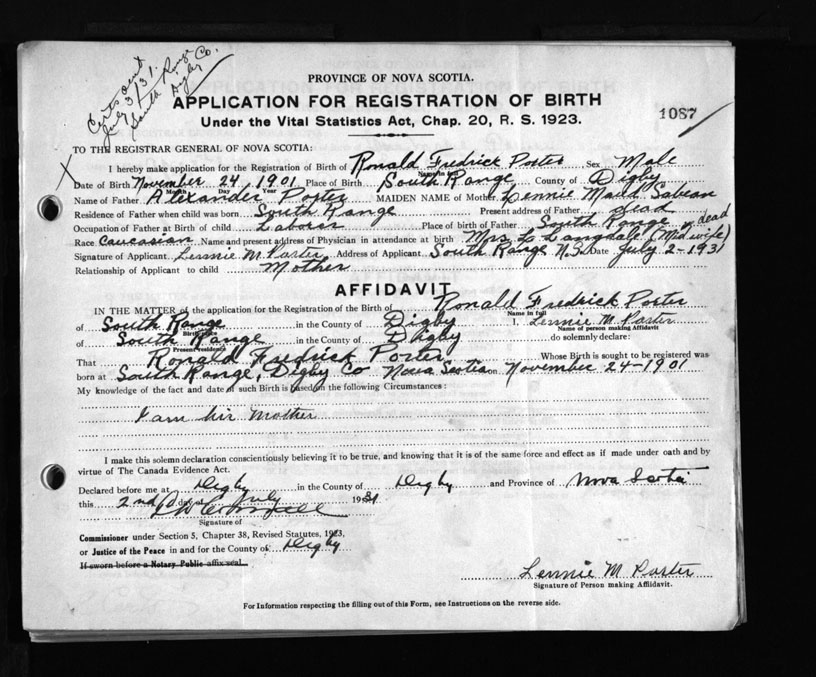 Certs sent
July 3/31.
South Range
Digby Co.
PROVINCE OF NOVA SCOTIA.
APPLICATION FOR REGISTRATION OF BIRTH
1087
Under the Vital Statistics Act, Chap. 20, R. S. 1923.
TO THE REGISTRAR GENERAL OF NOVA SCOTIA:
I hereby make application for the Registration of Birth of Ronald Fredrick Porter Sex Male
Name in full
Date of Birth November 24, 1901 Place of Birth South Range County of Digby
Month Day Year
Name of Father Alexander Porter MAIDEN NAME of Mother Lennie Maud Sabean
Residence of Father when child was born South Range Present address of Father dead
Occupation of Father at Birth of child Laborer Place of birth of Father South Range
Race Caucasian Name and present address of Physician in attendance at birth Mrs L Langdale (Mid wife) dead
Signature of Applicant Lennie M. Porter Address of Applicant South Range N.S. Date July 2-1931
Relationship of Applicant to child Mother
AFFIDAVIT
IN THE MATTER of the application for the Registration of the Birth of Ronald Fredrick Porter
Name in full
of South Range in the County of Digby I, Lennie M. Porter
Birth place Name of person making Affidavit
of South Range in the County of Digby do solemnly declare:
Present residence
That Ronald Fredrick Porter Whose Birth is sought to be registered was
born at South Range, Digby Co Nova Scotia on November 24-1901
My knowledge of the fact and date of such Birth is based on the following Circumstances:
I am his Mother
I make this solemn declaration conscientiously believing it to be true, and knowing that it is of the same force and effect as if made under oath and by
virtue of The Canada Evidence Act.
Declared before me at Digby in the County of Digby and Province of Nova Scotia
this 2nd day of July 1931
Signature of
Commissioner under Section 5, Chapter 38, Revised Statutes, 1923,
or Justice of the Peace in and for the County of Digby
If sworn before a Notary Public affix seal.
Lennie M Porter
Signature of Person making Affidavit.
For Information respecting the filling out of this Form, see Instructions on the reverse side.